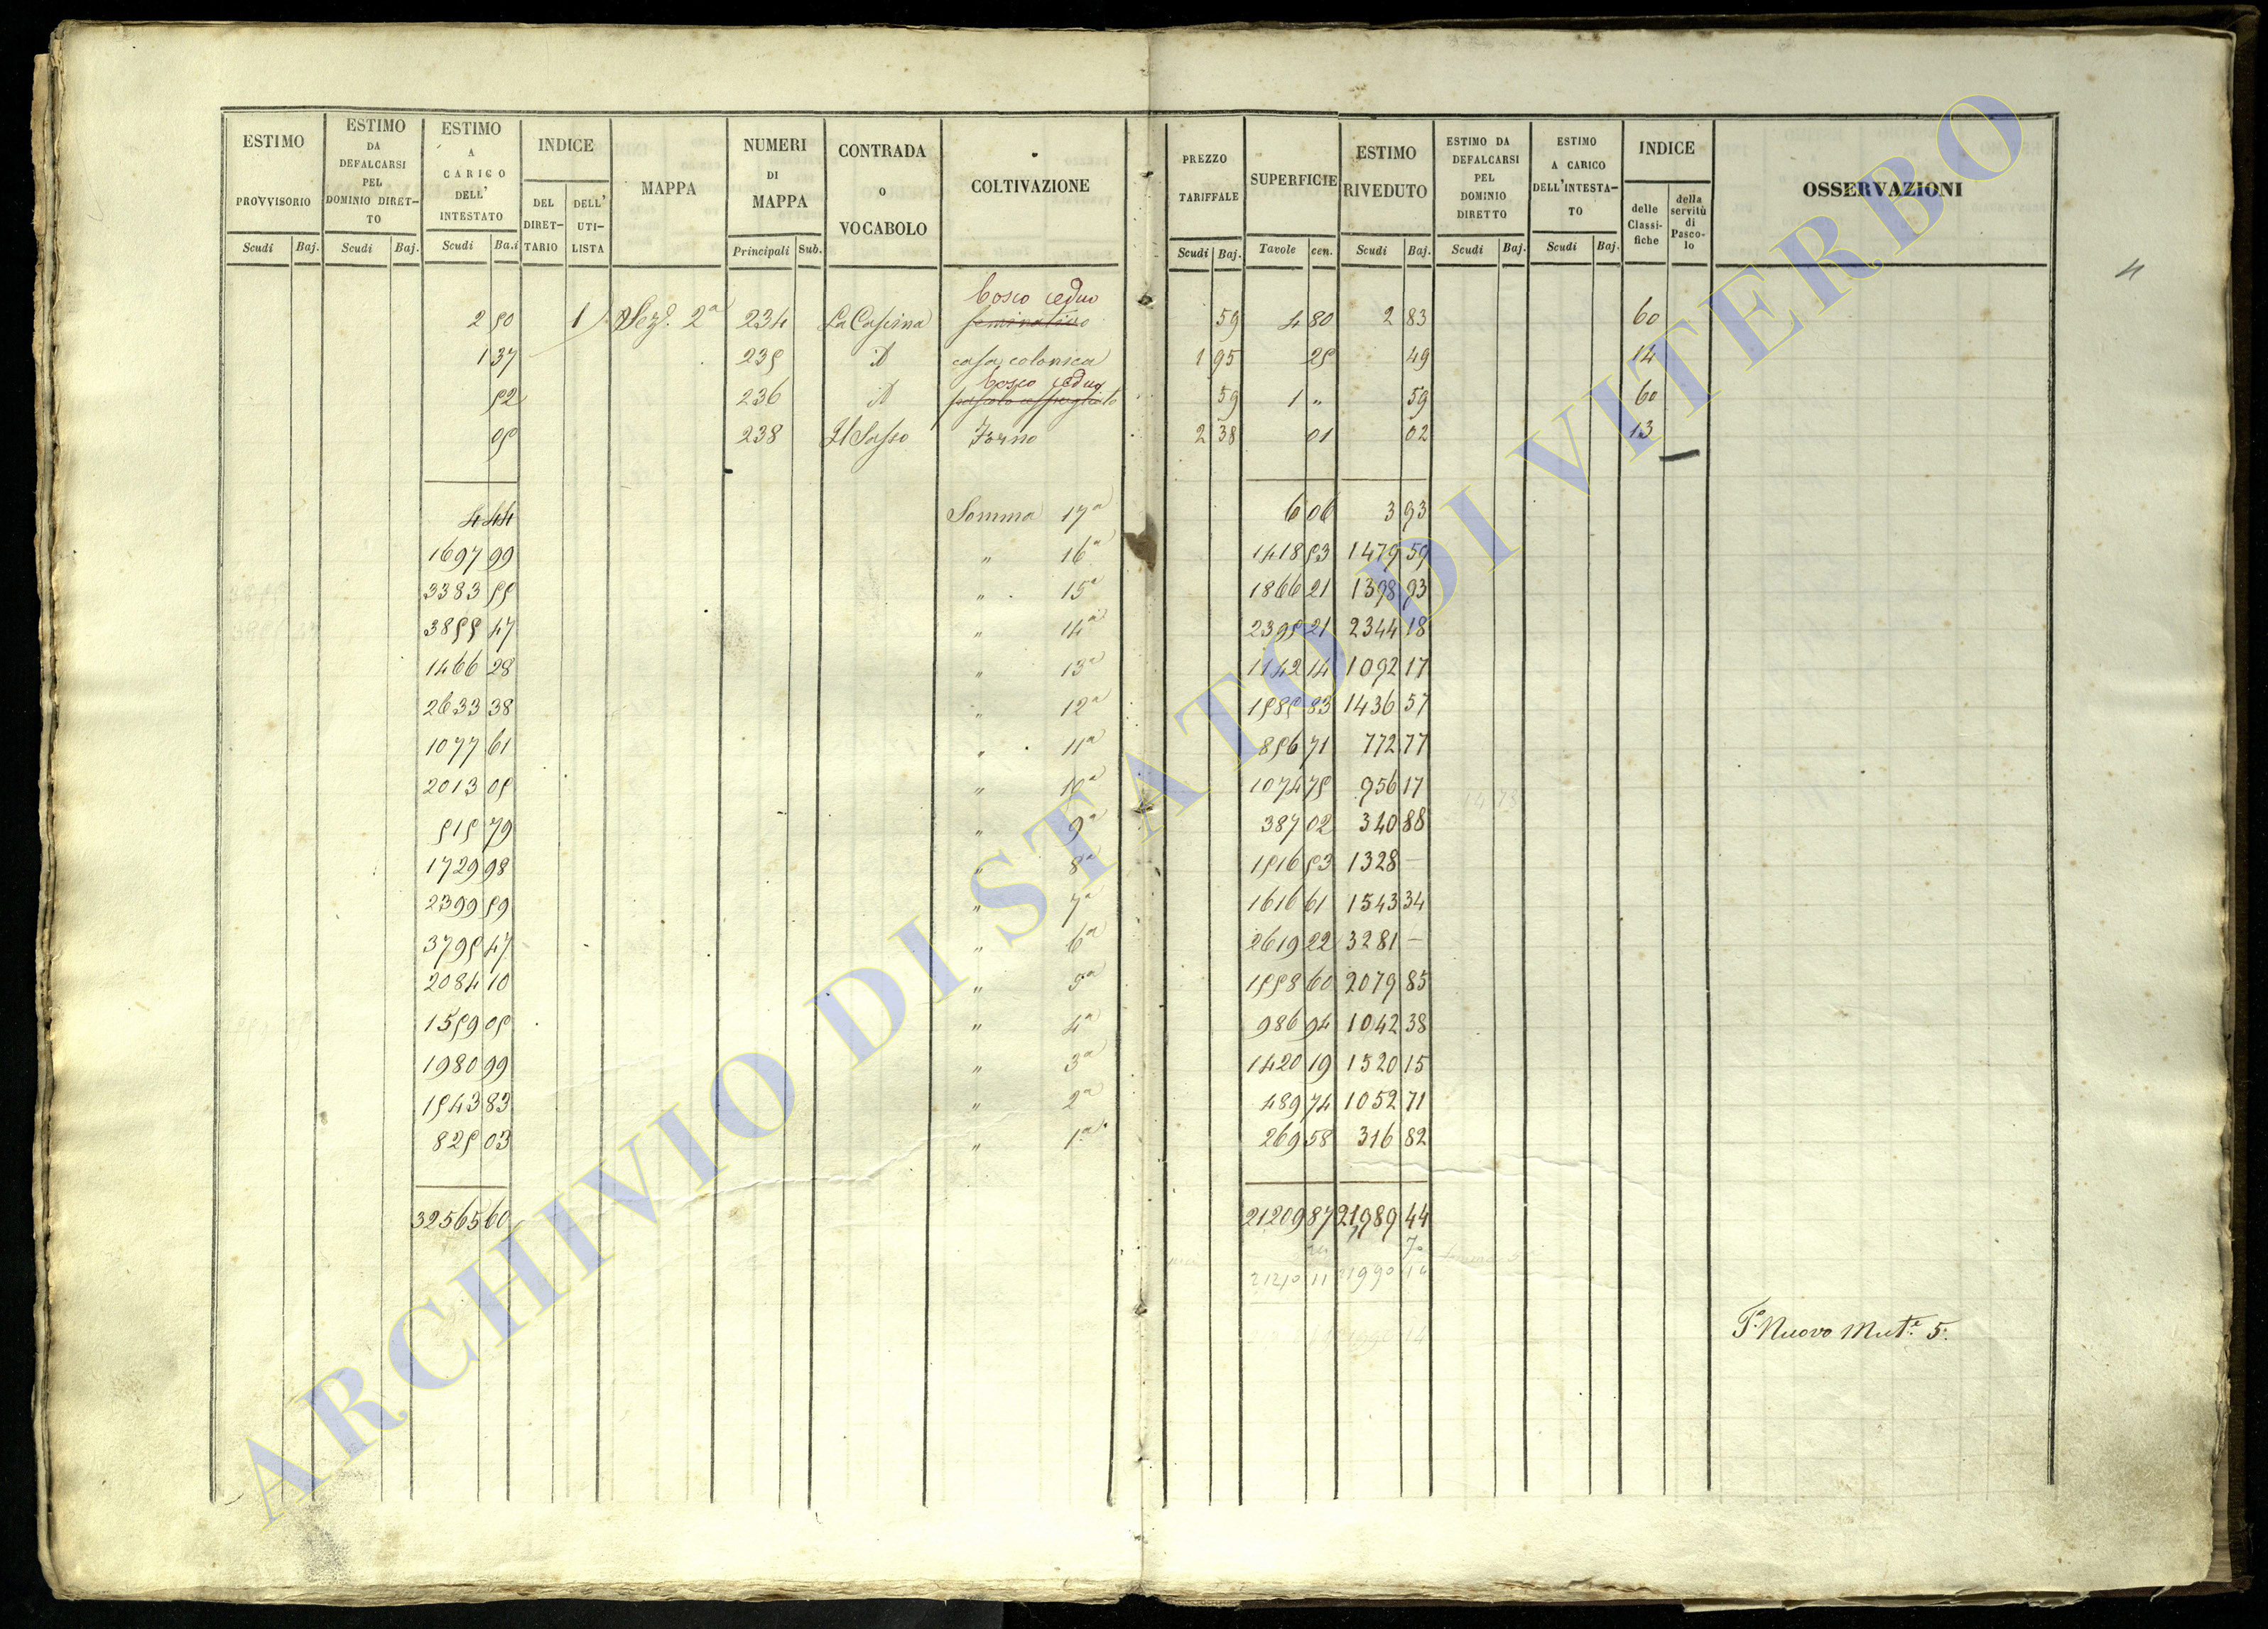 ESTIMO PROVVISORIO Scudi Baj. ESTIMO DA DEFALCARSI PEL DOMINIO DIRETTO Scudi Baj. ESTIMO A CARICO DELL' INTESTATO Scudi Ba.i INDICE DEL DIRETTARIO DELL' UTILISTA MAPPA NUMERI DI MAPPA Principali Sub. CONTRADA O VOCABOLO COLTIVAZIONE PREZZO TARIFFALE Scudi Baj. SUPERFICIE Tavole cen. ESTIMO RIVEDUTO Scudi Baj. ESTIMO DA DEFALCARSI PEL DOMINIO DIRETTO Scudi Baj. ESTIMO A CARICO DELL'INTESTATO Scudi Baj. INDICE delle Classifiche della servitù di Pascolo OSSERVAZIONI
4
bosco ceduo
2 50 1 Sez.e 2a 234 La Cascina seminativo 59 4 80 2 83 60
1 37 235 id casa colonica 1 95 25 49 14
bosco ceduo
52 236 id pascolo cespugliato 59 1 " 59 60
05 238 Il Sasso Forno 2 38 01 02 13
4 44 Somma 17a 6 06 3 93
1697 99 " 16a 1418 53 1479 59
3383 55 " 15a 1866 21 1398 93
3855 47 " 14a 2395 21 2344 18
1466 28 " 13a 1142 14 1092 17
2633 38 " 12a 1585 83 1436 57
1077 61 " 11a 856 71 772 77
2013 05 " 10a 1074 75 956 17
515 79 " 9a 387 02 340 88
1729 98 " 8a 1516 53 1328 —
2399 59 " 7a 1616 61 1543 34
3795 47 " 6a 2619 22 3281 —
2084 10 " 5a 1558 60 2079 85
1559 05 " 4a 986 94 1042 38
1980 99 " 3a 1420 19 1520 15
1543 83 " 2a 489 74 1052 71
825 03 " 1a 269 58 316 82
32565 60 21209 87 21989 44
70
21210 11 21990 14
P.o Nuovo Mut.e 5.
ARCHIVIO DI STATO DI VITERBO